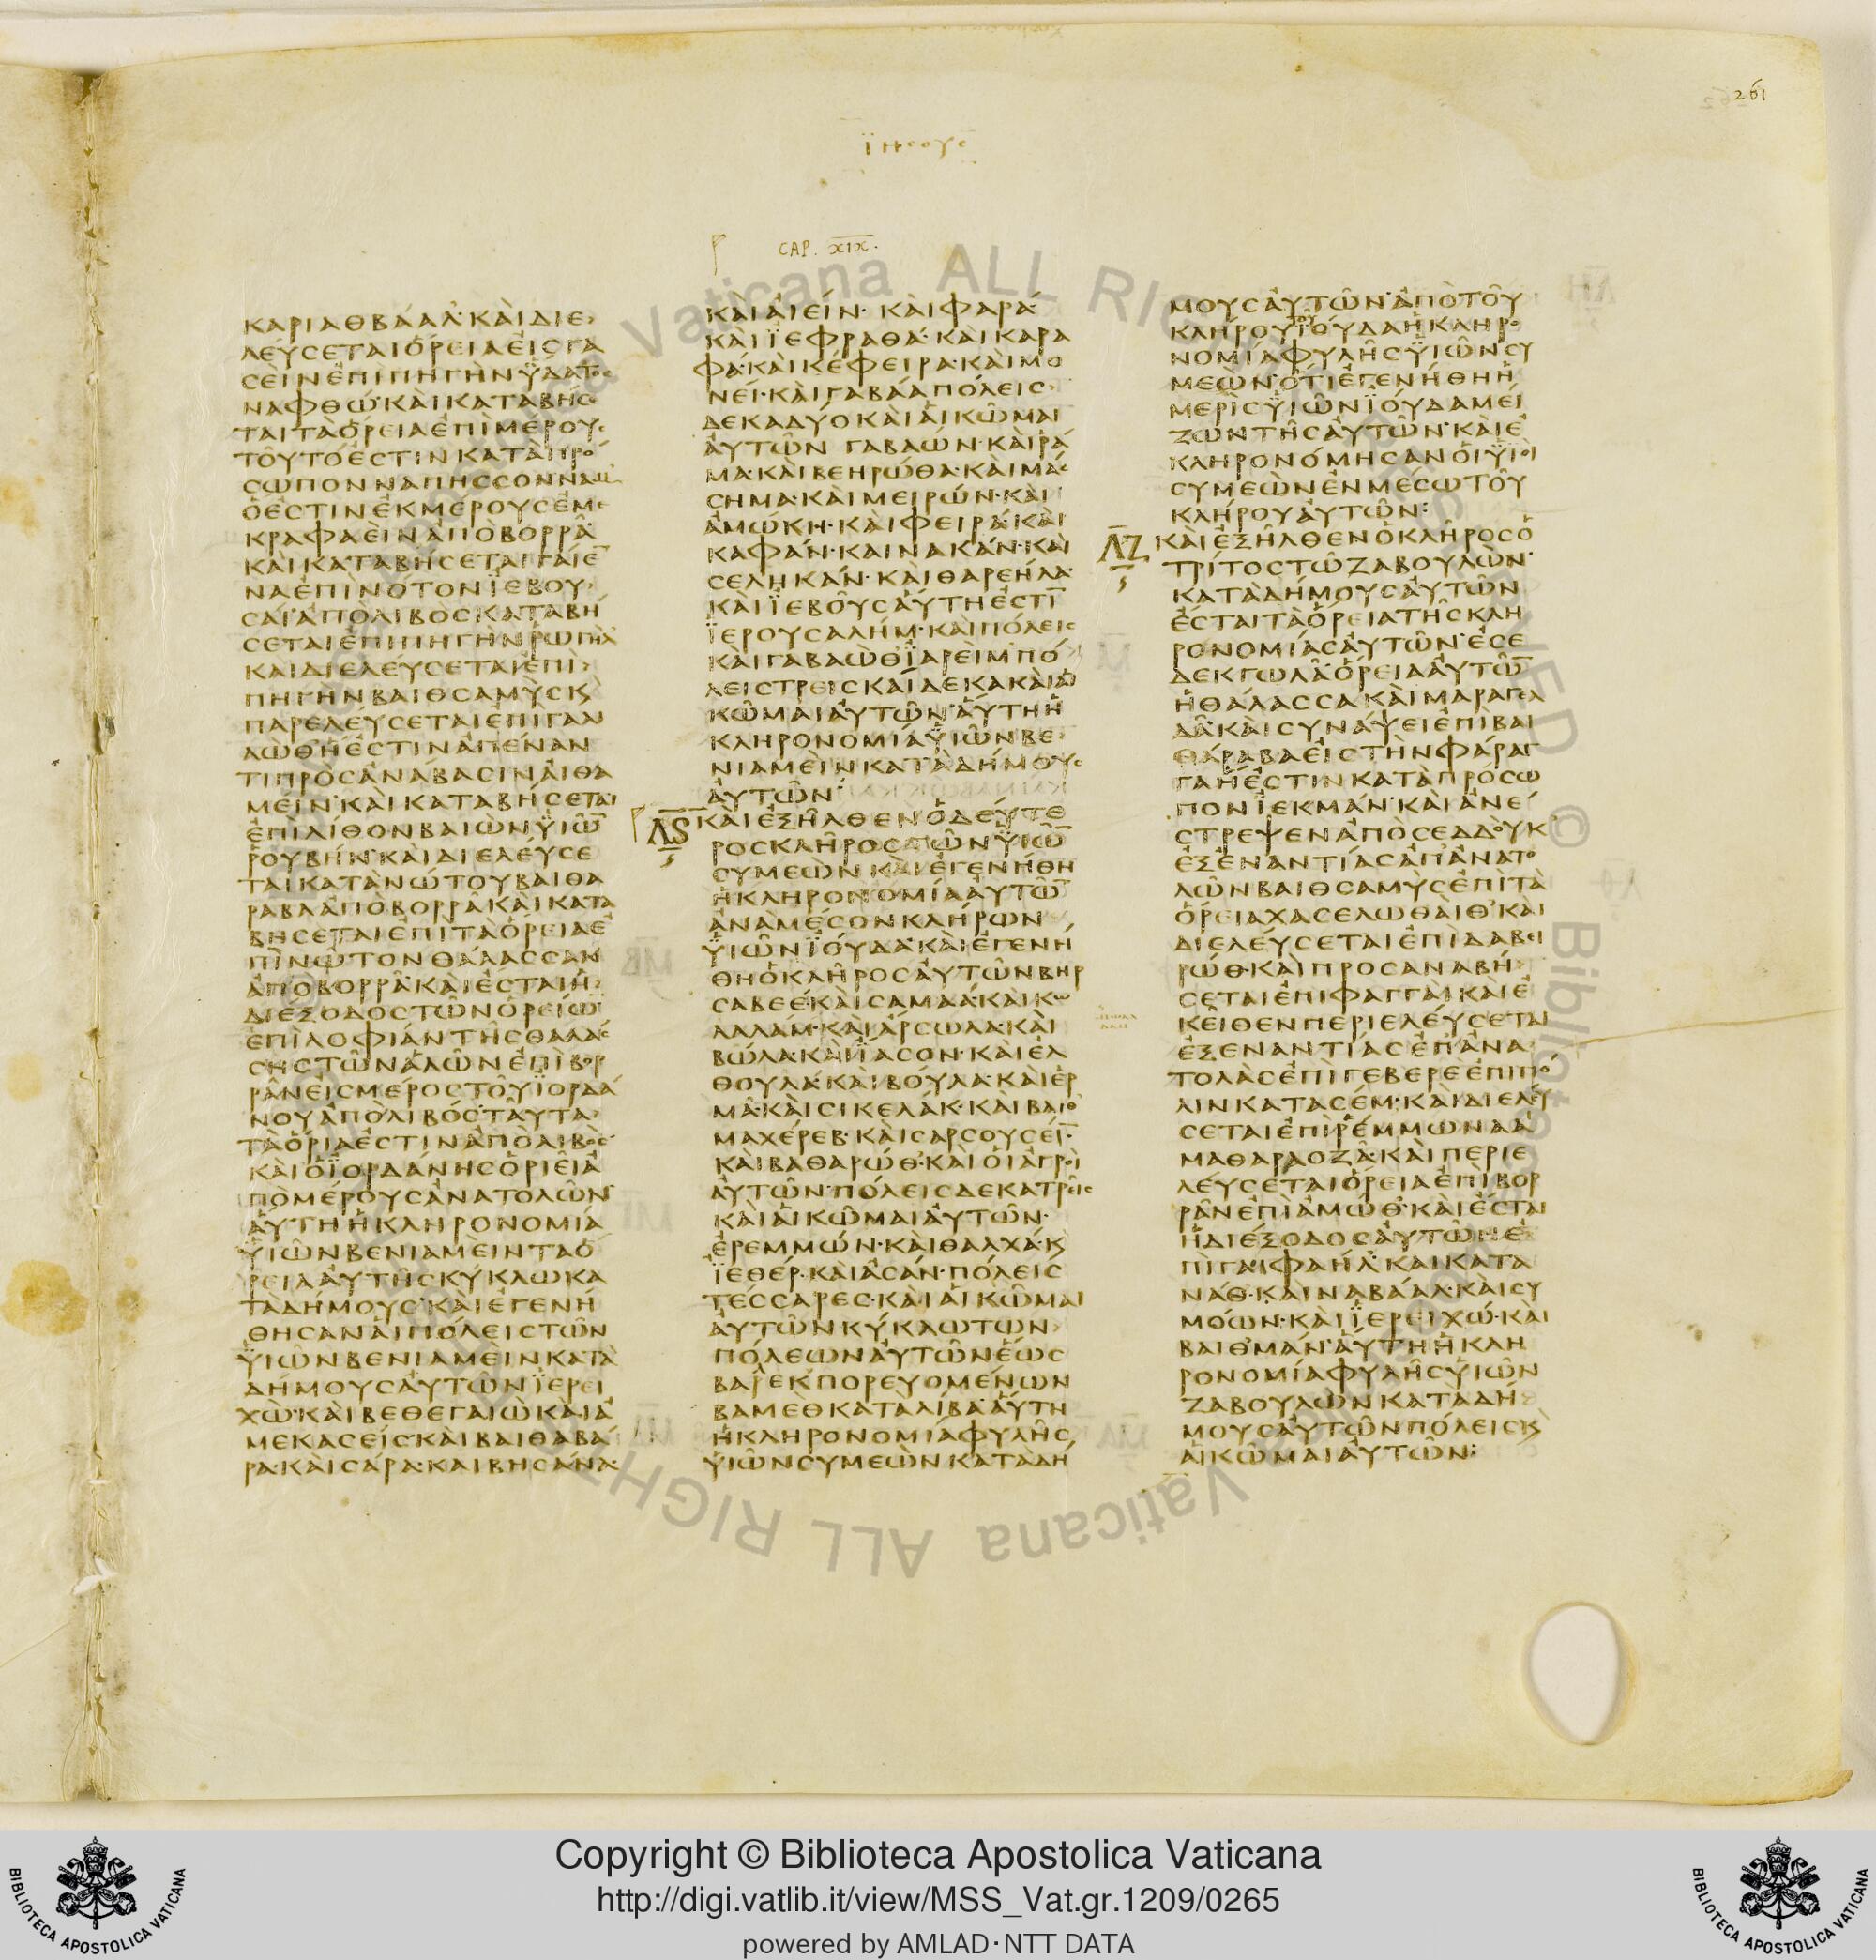 261
ϊησουσ
CAP. XIX.
ΚΑΡΙΑΘΒΆΑΛ· ΚΑῚ ΔΙΕ
ΛΕΎϹΕΤΑΙ ὍΡΕΙΑ ΕἸϹ ΓΑ
ϹΕῚΝ ἘΠῚ ΠΗΓῊΝ ὝΔΑΤΟϹ
ΝΑΦΘΏ· ΚΑῚ ΚΑΤΑΒΉϹΕ
ΤΑΙ ΤᾺ ὍΡΕΙΑ ἘΠῚ ΜΈΡΟΥϹ
ΤΟΥ͂ΤΌ ἘϹΤΙΝ ΚΑΤᾺ ΠΡΌ
ϹΩΠΟΝ ΝΑΠΗϹ ϹΟΝΝΑΜ
Ὅ ἘϹΤΙΝ ἘΚ ΜΈΡΟΥϹ ἘΜΕ
ΚΡΑΦΑΕῚΝ ἈΠῸ ΒΟΡΡΑ͂
ΚΑῚ ΚΑΤΑΒΉϹΕΤΑΙ ΓΑΙΕ̅
ΝΑ ἘΠῚ ΝΟΤΟΝ ἸΕΒΟΥ
ϹΑΙ· ἈΠῸ ΛΙΒῸϹ ΚΑΤΑΒΉ
ϹΕΤΑΙ ἘΠῚ ΠΗΓῊΝ ΡΩΓΗΛ
ΚΑῚ ΔΙΕΛΕΎϹΕΤΑΙ ἘΠῚ
ΠΗΓῊΝ ΒΑΙΘϹΑΜῪϹ Κ̀
ΠΑΡΕΛΕΥϹΕΤΑΙ ἘΠΙ ΓΑΛ
ΛῺΘ Ἥ ἘϹΤΙΝ ἈΠΈΝΑΝ
ΤΙ ΠΡῸϹ ἈΝΆΒΑϹΙΝ ΑἸΘΑ
ΜΕΊΝ· ΚΑῚ ΚΑΤΑΒΉϹΕΤΑΙ
ἘΠῚ ΛΊΘΟΝ ΒΑΙῺΝ ὙΙΩ̅
ῬΟΥΒΉΝ· ΚΑῚ ΔΙΕΛΕΥϹΕ
ΤΑΙ ΚΑΤᾺ ΝΏΤΟΥ ΒΑΙΘΑ
ΡΑΒΑ ἈΠῸ ΒΟΡΡΑ͂ ΚΑῚ ΚΑΤΑ
ΒΗϹΕΤΑΙ ἘΠῚ ΤᾺ ὍΡΕΙΑ Ἐ
ΠῚ ΝΩΤΟΝ ΘΆΛΑϹϹΑΝ
ἈΠῸ ΒΟΡΡΑ͂· ΚΑῚ ἜϹΤΑΙ Ἡ
ΔΙΈΞΟΔΟϹ ΤΩ͂Ν ὉΡΕΊΩ̅
ἘΠῚ ΛΟΦΙᾺΝ ΤΗ͂Ϲ ΘΑΛΆϹ
ϹΗϹ ΤΩ͂Ν ἉΛΩ͂Ν ἘΠῚ ΒΟΡ
ΡΑ͂Ν ΕἸϹ ΜΈΡΟϹ ΤΟΥ͂ ἸΟΡΔΆ
ΝΟΥ ἈΠῸ ΛΙΒΌϹ· ΤΑΥ͂ΤΑ
ΤᾺ ὍΡΙΑ ἘϹΤῚΝ ἈΠῸ ΛΙΒῸϹ
ΚΑῚ Ὁ ἸΟΡΔΆΝΗϹ ὉΡΙΕΙ͂ Ἀ
ΠῸ ΜΈΡΟΥϹ ἈΝΑΤΟΛΩ͂Ν
ΑὝΤΗ Ἡ ΚΛΗΡΟΝΟΜΊΑ
ὙΙΩ͂Ν ΒΕΝΙΑΜΕῚΝ ΤΑ Ὅ
ΡΕΙΑ ΑΥΤΗ͂Ϲ ΚΎΚΛΩ ΚΑ
ΤᾺ ΔΉΜΟΥϹ· ΚΑῚ ἘΓΕΝΉ
ΘΗϹΑΝ ΑἹ ΠΌΛΕΙϹ ΤΩ͂Ν
ὙΙΩ͂Ν ΒΕΝΙΑΜΕῚΝ ΚΑΤᾺ
ΔΉΜΟΥϹ ΑΥ̓ΤΩ͂Ν ἸΕΡΕΙ
ΧῺ· ΚΑῚ ΒΕΘΕΓΑΙῺ ΚΑῚ Ἀ
ΜΕΚΑϹΕΊϹ· ΚΑῚ ΒΑΙΘΑΒΑ
ΡΑ· ΚΑῚ ϹΆΡΑ· ΚΑῚ ΒΗϹΆΝΑ·
ΚΑῚ ΑἸΕΊΝ· ΚΑῚ ΦΑΡΆ·
ΚΑῚ ἸΕΦΡΑΘΆ· ΚΑῚ ΚΑΡΑ
ΦΆ· ΚΑῚ ΚΕΦΕΙΡΑ· ΚΑῚ ΜΟ
ΝΕΊ· ΚΑῚ ΓΑΒΆΑ ΠΌΛΕΙϹ
ΔΕΚΑΔΎΟ ΚΑῚ ΑἹ ΚΩ͂ΜΑΙ
ΑΥ̓ΤΩ͂Ν ΓΑΒΑΏΝ· ΚΑῚ ῬΑ
ΜΑ· ΚΑῚ ΒΕΗΡΏΘΑ· ΚΑῚ ΜΑϹ
ϹΗΜΑ· ΚΑῚ ΜΕΙΡΏΝ· ΚΑῚ
ἈΜΏΚΗ· ΚΑῚ ΦΕΙΡΆ· ΚΑῚ
ΚΑΦΆΝ· ΚΑῚ ΝΑΚΆΝ· ΚΑῚ
ϹΕΛΗΚΆΝ· ΚΑῚ ΘΑΡΕΗΛΑ·
ΚΑῚ ἸΕΒΟΥ͂Ϲ ΑὝΤΗ ἘϹΤΙ̅
ἸΕΡΟΥϹΑΛΉΜ· ΚΑῚ ΠΌΛΕΙϹ
ΚΑῚ ΓΑΒΑῺΘ ἸΑΡΕῚΜ ΠΌ
ΛΕΙϹ ΤΡΕΙϹ ΚΑῚ ΔΕΚΑ ΚΑῚ ΑἹ
ΚΩ͂ΜΑΙ ΑΥ̓ΤΩ͂Ν· ΑὝΤΗ Ἡ
ΚΛΗΡΟΝΟΜΊΑ ὙΙΩ͂Ν ΒΕ
ΝΙΑΜΕῚΝ ΚΑΤᾺ ΔΉΜΟΥϹ
ΑΥ̓ΤΩ͂Ν·
ΛϚ ΚΑῚ ἘΞΗ͂ΛΘΕΝ Ὁ ΔΕΎΤΕ
ΡΟϹ ΚΛΗ͂ΡΟϹ ΤΩ͂Ν ὙΙΩ̅
ϹΥΜΕῺΝ ΚΑῚ ἘΓΕΝΉΘΗ
Ἡ ΚΛΗΡΟΝΟΜΊΑ ΑΥ̓ΤΩ̅
ἈΝᾺ ΜΈϹΟΝ ΚΛΉΡΩΝ
ὙΙΩ͂Ν ἸΟΎΔΑ· ΚΑῚ ἘΓΕΝΉ
ΘΗ Ὁ ΚΛΗ͂ΡΟϹ ΑΥ̓ΤΩ͂Ν ΒΗΡ
ϹΑΒΕΈ· ΚΑῚ ϹΑΜΑΆ· ΚΑῚ ΚΩ
ΛΑΔΆΜ· ΚΑῚ ἈΡϹΩΛΑ· ΚΑῚ
ΒΩΛΑ· ΚΑῚ ἸΑϹΟΝ· ΚΑῚ ἘΛ
ΘΟΥΛΆ· ΚΑῚ ΒΟΥΛΑ· ΚΑῚ ἘΡ
ΜΑ͂· ΚΑῚ ϹΙΚΕΛΆΚ· ΚΑῚ ΒΑΙΘ
ΜΑΧΈΡΕΒ· ΚΑῚ ϹΑΡϹΟΥϹΕΊ̅·
ΚΑῚ ΒΑΘΑΡΏΘ· ΚΑῚ ΟἹ ἈΓΡΟῚ
ΑΥ̓ΤΩ͂Ν· ΠΌΛΕΙϹ ΔΕΚΑΤΡΕΙ͂Ϲ
ΚΑῚ ΑἹ ΚΩ͂ΜΑΙ ΑΥ̓ΤΩ͂Ν·
ἘΡΕΜΜΏΝ· ΚΑῚ ΘΑΛΧΆ· Κ̀
ἸΕΘΈΡ· ΚΑῚ ἈϹΆΝ· ΠΌΛΕΙϹ
ΤΈϹϹΑΡΕϹ· ΚΑῚ ΑἹ ΚΩ͂ΜΑΙ
ΑΥ̓ΤΩ͂Ν ΚΎΚΛΩ ΤΩΝ
ΠΌΛΕΩΝ ΑΥ̓ΤΩ͂Ν ἝΩϹ
ΒΑΡΕΚ ΠΟΡΕΥΟΜΈΝΩΝ
ΒΑΜΕΘ ΚΑΤΑ ΛΊΒΑ· ΑὝΤΗ
Ἡ ΚΛΗΡΟΝΟΜΊΑ ΦΥΛΗ͂Ϲ
ὙΙΩ͂Ν ϹΥΜΕῺΝ ΚΑΤᾺ ΔΉ
ΜΟΥϹ ΑΥ̓ΤΩ͂Ν· ἈΠῸ ΤΟΥ͂
ΚΛΉΡΟΥ ἸΟΎΔΑ Ἡ ΚΛΗΡΟ
ΝΟΜΊΑ ΦΥΛΗ͂Ϲ ὙΙΩ͂Ν ϹΥ
ΜΕῺΝ· ὍΤΙ ἘΓΕΝΉΘΗ Ἡ
ΜΕΡῚϹ ὙΙΩ͂Ν ἸΟΎΔΑ ΜΕΊ
ΖΩΝ ΤΗ͂Ϲ ΑΥ̓ΤΩ͂Ν· ΚΑῚ Ἐ
ΚΛΗΡΟΝΌΜΗϹΑΝ ΟἹ ὙΙΟῚ
ϹΥΜΕῺΝ ἘΝ ΜΈϹΩ ΤΟΥ͂
ΚΛΉΡΟΥ ΑΥ̓ΤΩ͂Ν:
ΛΖ ΚΑῚ ἘΞΗ͂ΛΘΕΝ Ὁ ΚΛΗ͂ΡΟϹ Ὁ
ΤΡΊΤΟϹ ΤΩ͂ ΖΑΒΟΥΛῺΝ·
ΚΑΤᾺ ΔΉΜΟΥϹ ΑΥ̓ΤΩ͂Ν
ἜϹΤΑΙ ΤᾺ ὍΡΕΙΑ ΤΗ͂Ϲ ΚΛΗ
ΡΟΝΟΜΊΑϹ ΑΥ̓ΤΩ͂Ν· ἘϹΕ
ΔΕΚΓΩΛΑ͂· ὍΡΕΙΑ ΑΥ̓ΤΩ̅
Ἡ ΘΆΛΑϹϹΑ ΚΑῚ ΜΑΡΑΓΕΛ
ΔΑ͂· ΚΑῚ ϹΥΝΆΨΕΙ ἘΠῚ ΒΑΙ
ΘΆΡΑΒΑ ΕἸϹ ΤῊΝ ΦΆΡΑΓ
ΓΑ Ἥ ἘϹΤΙΝ ΚΑΤᾺ ΠΡΌϹΩ
ΠΟΝ ἸΕΚΜΆΝ· ΚΑῚ ἈΝΈ
ϹΤΡΕΨΕΝ ἈΠῸ ϹΕΔΔΟΥΚ
ἘΞ ἘΝΑΝΤΊΑϹ ἈΠ᾽ ἈΝΑΤΟ
ΛΩ͂Ν ΒΑΙΘϹΑΜῪϹ ἘΠῚ ΤᾺ
ὍΡΕΙΑ ΧΑϹΕΛΩΘΑῚΘ· ΚΑῚ
ΔΙΕΛΕΎϹΕΤΑΙ ἘΠῚ ΔΑΒΕΙ
ΡΏΘ· ΚΑῚ ΠΡΟϹΑΝΑΒΉ
ϹΕΤΑΙ ἘΠῚ ΦΑΓΓΑῚ ΚΑῚ Ἐ
ΚΕΙ͂ΘΕΝ ΠΕΡΙΕΛΕΎϹΕΤΑΙ
ἘΞ ἘΝΑΝΤΊΑϹ ἘΠ᾽ ἈΝΑ
ΤΟΛᾺϹ ἘΠῚ ΓΕΒΕΡΕ ἘΠῚ ΠΌ
ΛΙΝ ΚΑΤΑϹΈΜ· ΚΑῚ ΔΙΕΛΕΎ
ϹΕΤΑΙ ἘΠῚ ῬΕΜΜΩΝΑΑ
ΜΑΘΑΡΑΟΖΑ͂· ΚΑῚ ΠΕΡΙΕ
ΛΕΎϹΕΤΑΙ ὍΡΕΙΑ ἘΠῚ ΒΟΡ
ΡΑ͂Ν ἘΠῚ ἈΜΏΘ· ΚΑῚ ἜϹΤΑΙ
Ἡ ΔΙΈΞΟΔΟϹ ΑΥ̓ΤΩ͂Ν Ἐ
ΠῚ ΓΑΙΦΑΗΛ· ΚΑῚ ΚΑΤΑ
ΝΆΘ· ΚΑῚ ΝΑΒΆΑΛ· ΚΑῚ ϹΥ
ΜΟΏΝ· ΚΑῚ ἸΕΡΕΙΧΏ· ΚΑῚ
ΒΑΙΘΜΆΝ· ΑὝΤΗ Ἡ ΚΛΗ
ΡΟΝΟΜΊΑ ΦΥΛΗ͂Ϲ ὙΙΩ͂Ν
ΖΑΒΟΥΛῺΝ ΚΑΤᾺ ΔΉ
ΜΟΥϹ ΑΥ̓ΤΩ͂Ν ΠΌΛΕΙϹ Κ̀
ΑἹ ΚΩ͂ΜΑΙ ΑΥ̓ΤΩ͂Ν:
Copyright © Biblioteca Apostolica Vaticana
http://digi.vatlib.it/view/MSS_Vat.gr.1209/0265
powered by AMLAD·NTT DATA
BIBLIOTECA APOSTOLICA VATICANA
BIBLIOTECA APOSTOLICA VATICANA